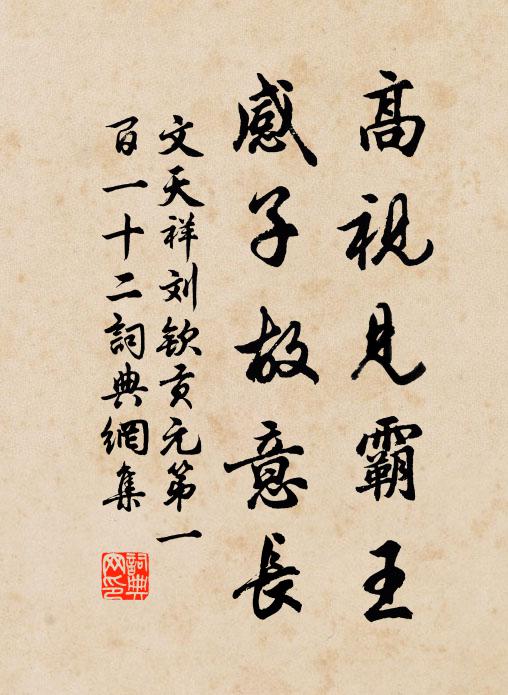 高視見霸王
感子故意長
文天祥刘欽贡元第一
百一十二詞典網集
詞典
网印